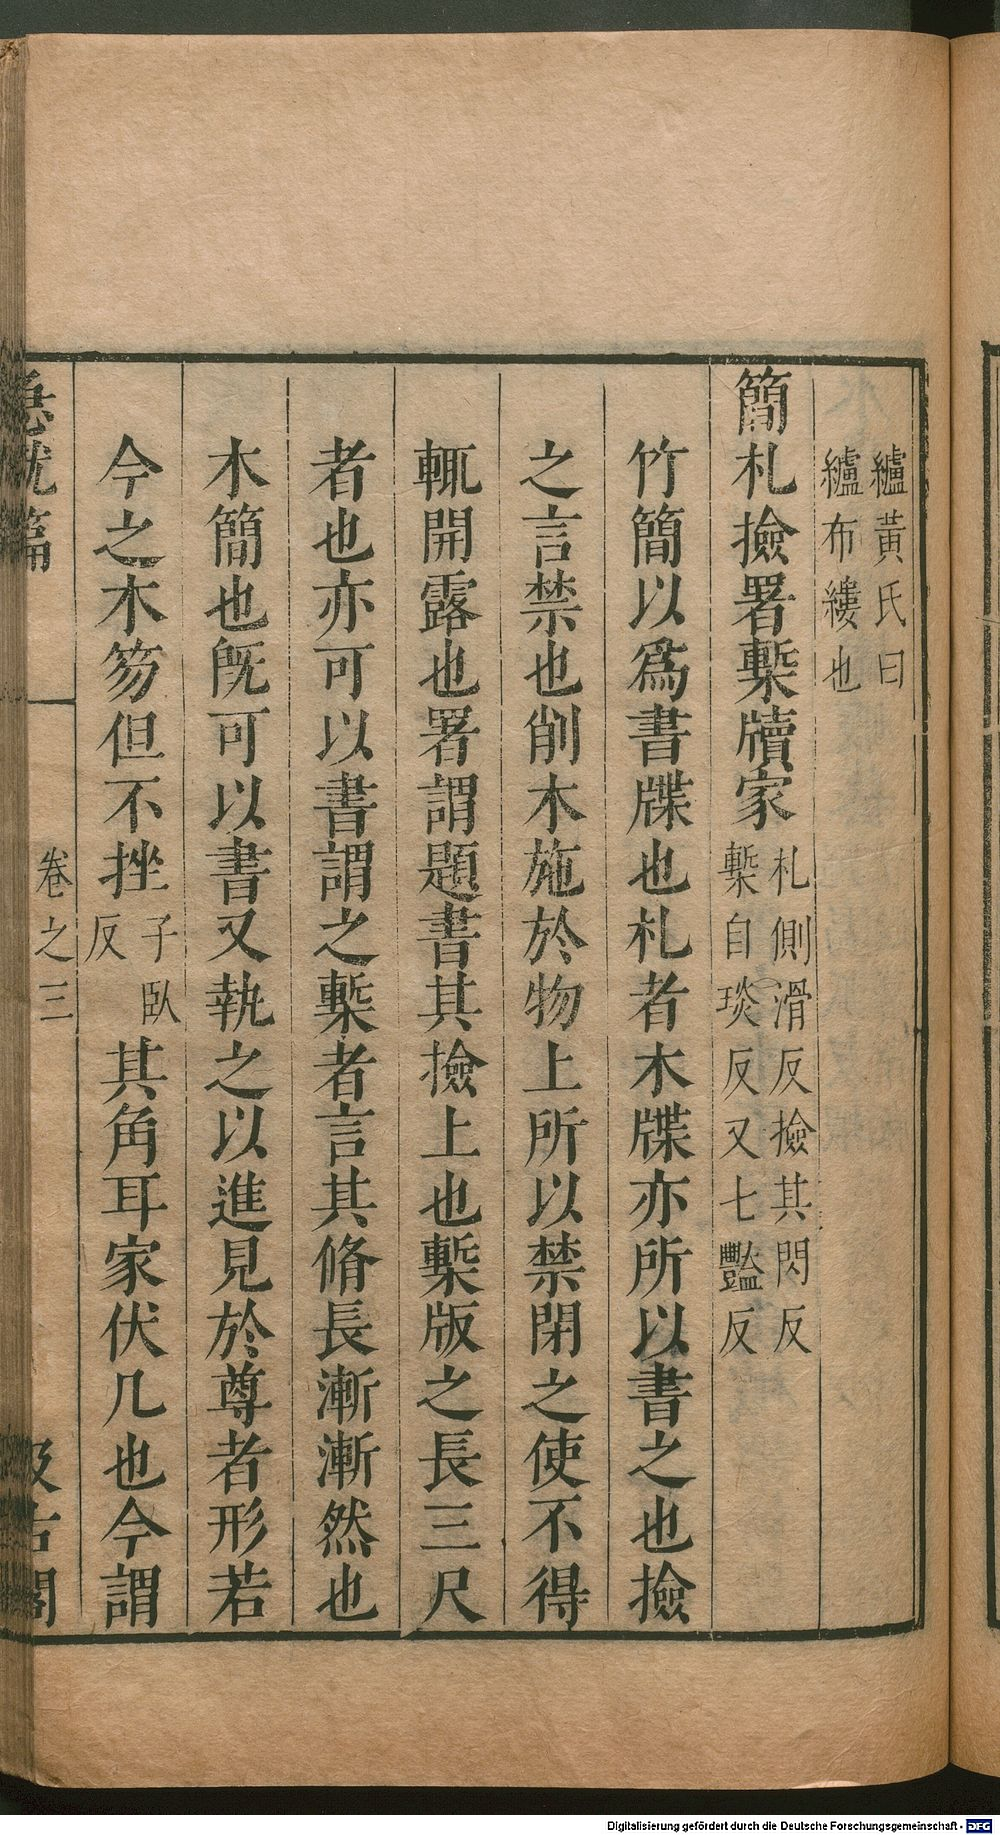 纑黃氏曰
纑布縷也
簡札撿署槧牘家
札側滑反撿其閃反
槧自琰反又七豔反
竹簡以爲書牒也札者木牒亦所以書之也撿
之言禁也削木施於物上所以禁閉之使不得
輒開露也署謂題書其撿上也槧版之長三尺
者也亦可以書謂之槧者言其脩長漸漸然也
木簡也旣可以書又執之以進見於尊者形若
今之木笏但不挫子臥反其角耳家伏几也今謂
急就篇 卷之三 汲古閣
Digitalisierung gefördert durch die Deutsche Forschungsgemeinschaft - DFG